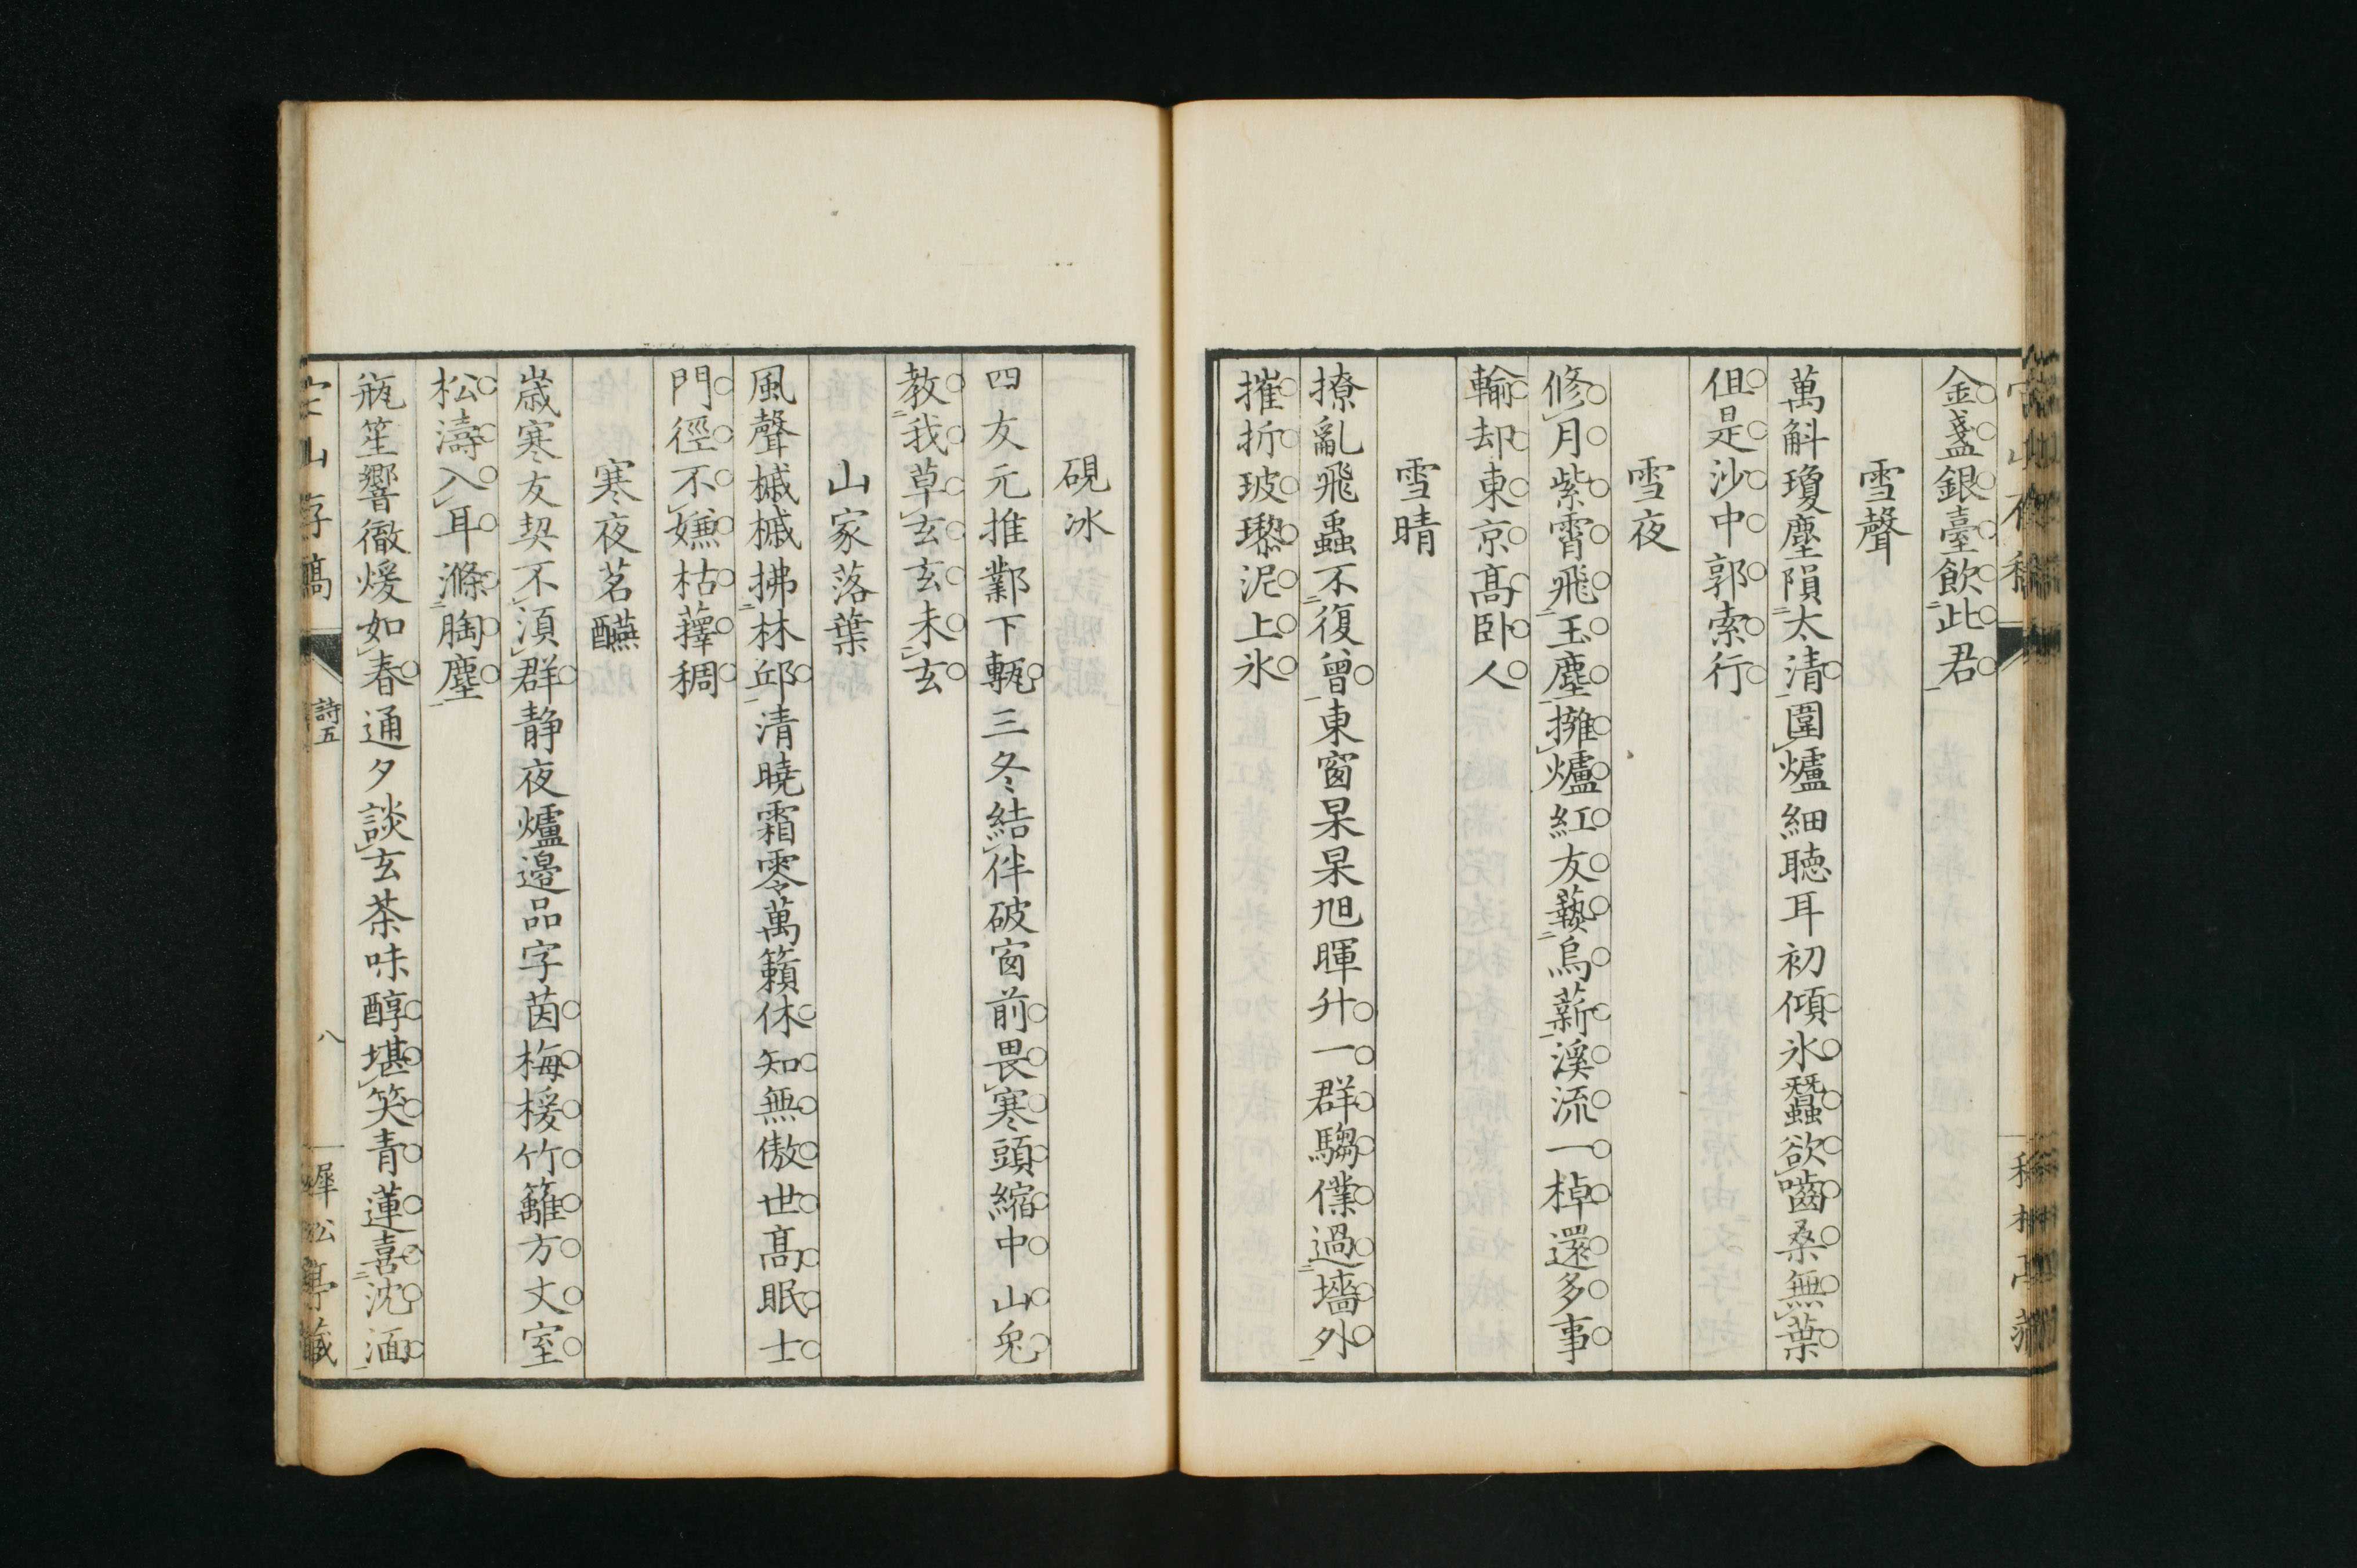 金盞銀臺飲此君
雪聲
萬斛瓊塵隕太清圍爐細聴耳初傾氷蠶欲嚙桑無葉
伹是沙中郭索行
雪夜
修月紫霄飛玉塵擁爐紅友爇烏薪溪流一棹還多事
輸却東京髙卧人
雪晴
撩亂飛蟲不復曾東窗杲杲旭暉升一群騶僕過墻外
摧折玻瓈泥上氷
硯冰
四友元推鄴下甎三冬結伴破窗前畏寒頭縮中山兔
教我草玄玄未玄
山家落葉
風聲槭槭拂林邱清曉霜零萬籟休知無傲世髙眠士
門徑不嫌枯蘀稠
寒夜茗醼
歳寒友契不湏群静夜爐邉品字茵梅援竹籬方丈室
松濤入耳滌胸塵
瓶笙響徹煖如春通夕談玄茶味醇堪笑青蓮喜沈湎
山存稿
詩五
八
犀松亭藏